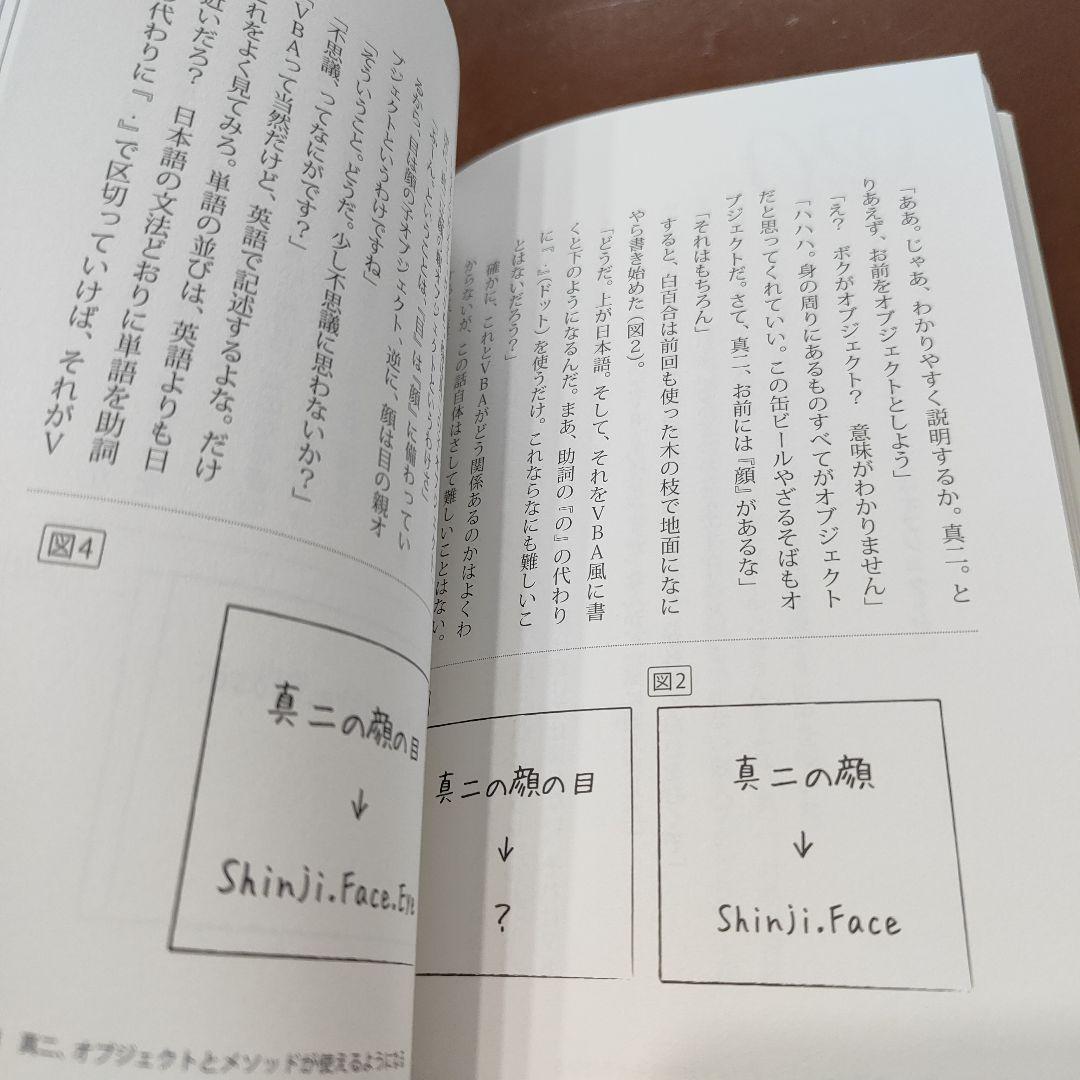 「ああ。じゃあ、わかりやすく説明するか。真二。と
りあえず、お前をオブジェクトとしよう」
「え？　ボクがオブジェクト？　意味がわかりません」
「ハハハ。身の周りにあるものすべてがオブジェクト
だと思ってくれていい。この缶ビールやざるそばもオ
ブジェクトだ。さて、真二、お前には『顔』があるな」
「それはもちろん」
すると、白百合は前回も使った木の枝で地面になに
やら書き始めた（図２）。
「どうだ。上が日本語。そして、それをＶＢＡ風に書
くと下のようになるんだ。まあ、助詞の『の』の代わり
に『.』（ドット）を使うだけ。これならなにも難しいこ
とはないだろう？」
確かに、これとＶＢＡがどう関係あるのかはよくわ
からないが、この話自体はさして難しいことはない。
図2
真二の顔
↓
Shinji.Face
真二の顔の目
↓
?
るから、目は顔の子オブジェクト、逆に、顔は目の親オ
ブジェクトというわけですね」
「そういうこと。どうだ。少し不思議に思わないか？」
「不思議、ってなにがです？」
「ＶＢＡって当然だけど、英語で記述するよな。だけ
れをよく見てみろ。単語の並びは、英語よりも日
近いだろ？　日本語の文法どおりに単語を助詞
代わりに『.』で区切っていけば、それがＶ
図4
真二の顔の目
↓
Shinji.Face.Eye
真二、オブジェクトとメソッドが使えるようになる